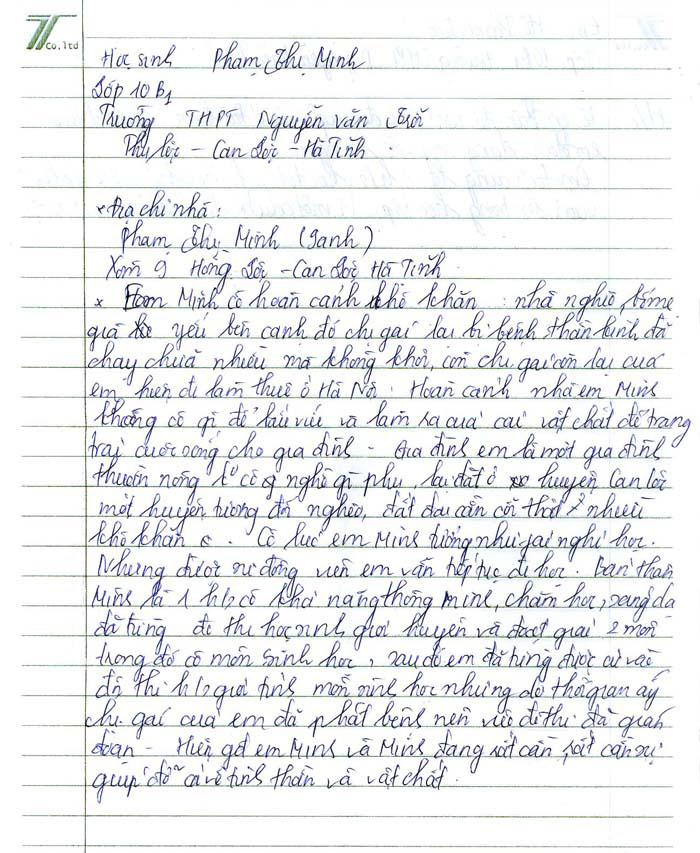 Co.ltd
Học sinh Phạm Thị Minh
Lớp 10 B1
Trường THPT Nguyễn Văn Trỗi
Phụ lộc - Can Lộc - Hà Tĩnh.
* Địa chỉ nhà:
Phạm Thị Minh (Oanh)
Xóm 9 Hồng Lộc - Can Lộc Hà Tĩnh
* Em Minh có hoàn cảnh khó khăn: nhà nghèo, bố mẹ
già yếu bên cạnh đó chị gái lại bị bệnh thần kinh đã
chạy chữa nhiều mà không khỏi, còn chị gái còn lại của
em hiện đi làm thuê ở Hà Nội. Hoàn cảnh nhà em Minh
không có gì để bấu víu và làm ra của cải vật chất để trang
trải cuộc sống cho gia đình - Gia đình em là một gia đình
thuần nông k° có nghề gì phụ, lại đất ở huyện Can lộc
một huyện tương đối nghèo, đất đai cằn cỗi thật nhiều
khó khăn. Có lúc em Minh tưởng như fải nghỉ học.
Nhưng được sự động viên em vẫn tiếp tục đi học. Bản thân
Minh là 1 h/s có khả năng thông minh, chăm học, sáng dạ
đã từng đi thi học sinh giỏi huyện và đoạt giải 2 môn
trong đó có môn Sinh học, sau đó em đã từng được cử vào
đội thi h/s giỏi tỉnh môn sinh học nhưng do thời gian ấy
chị gái của em đã phát bệnh nên việc đi thi đã gián
đoạn - Hiện gđ em Minh và Minh đang rất cần, rất cần sự
giúp đỡ cả về tinh thần và vật chất.